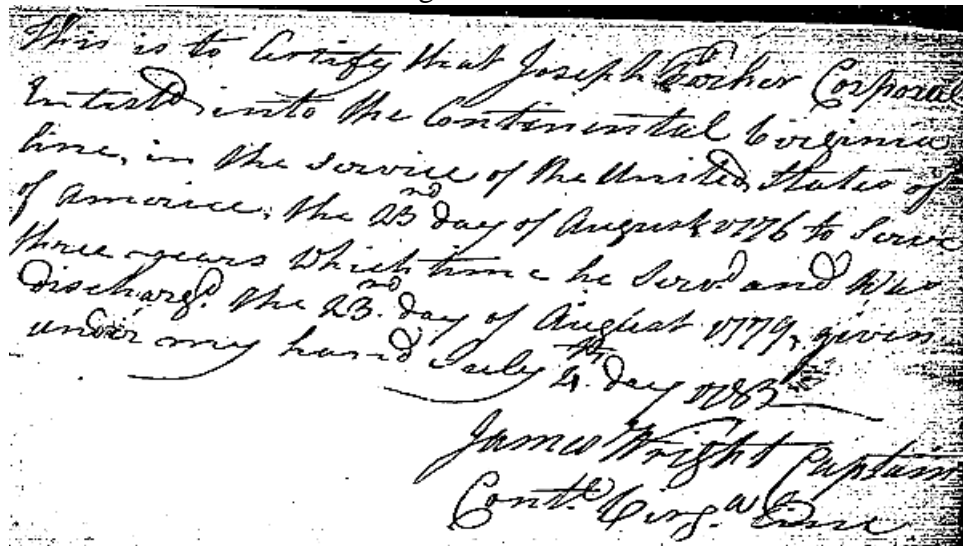 This is to Certify that Joseph Corporal
Entisted into the Continental Virginia
line, in the Service of the United States of
of America, the 23nd day of August 1776 to Serve
three years Which time he Servd. and Was
dischargd. the 23nd. day of August 1779, given
under my hand July 4th. day 1783
James Wright Captain
Contl. Virga. Line